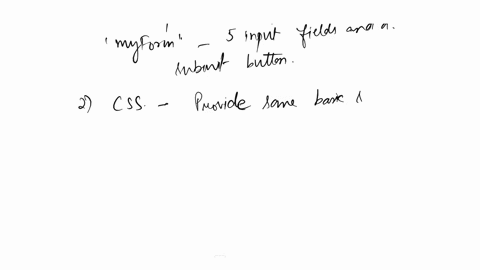 "myForm" - 5 input fields and a
submit button.
2) CSS. - Provide some basic s